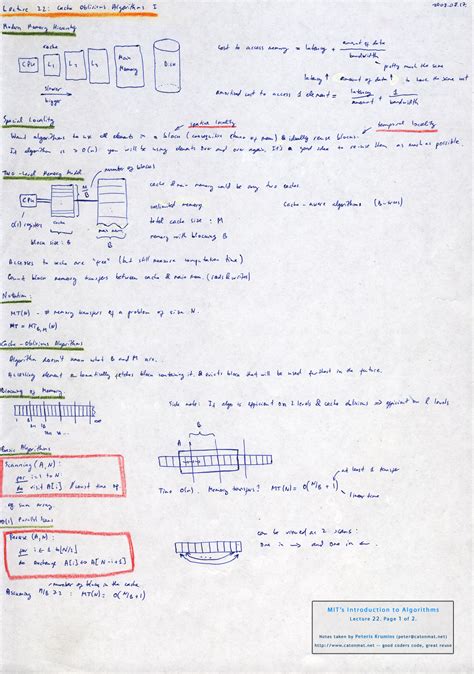 Lecture 22: Cache Oblivious Algorithms I
2007.08.17
Modern Memory Hierarchy
cache
CPU
L1
L2
L3
Main
Memory
Disk
slower
bigger
cost to access memory = latency + amount of data
bandwidth
pretty much the same
latency ↑ amount of data ↑ to have the same cost
amortized cost to access 1 element = latency
amount
+ 1
bandwidth
Special Locality
spatial locality
temporal locality
Want algorithms to use all elements in a block ( of mem) & ideally reuse blocks.
If algorithm is > O(n) you will be using elements over and over again. It's a good idea to reuse them as much as possible.
Two-Level Memory Model
number of blocks
CPU
M
B
O(1) registers
cache
main mem.
block size: B
cache & main memory could be any two caches
unlimited memory
total cache size: M
memory with blocking B
Cache-aware algorithms (B-trees)
Accesses to cache are "free" (but still measure computation time)
Count block memory transfers between cache & main mem. (reads & writes)
Notation:
MT(N) - # memory transfers of a problem of size N.
MT = MT_B,M(N)
Cache-Oblivious Algorithms
Algorithm doesn't know what B and M are.
Accessing element automatically fetches block containing it, & evicts block that will be used furthest in the future.
Blocking of Memory
Side note: If algo is efficient on 2 levels & cache oblivious => efficient on l levels
Basic Algorithms
Scanning (A,N):
for i=1 to N:
do visit A[i] // const time op
eg sum array.
B
A
Time O(n). Memory transfers? MT(N) = O(N/B + 1)
at least 1 transfer
linear time
O(1) Parallel Scans
Reverse (A,N):
for i ∈ 1 to [N/2]
do exchange A[i] ↔ A[N-i+1]
can be viewed as 2 scans:
One in → and one in ←.
number of blocks in the cache
Assuming M/B ≥ 2 : MT(N) = O(N/B + 1)
MIT's Introduction to Algorithms
Lecture 22, Page 1 of 2.
Notes taken by Peteris Krumins (peter@catonmat.net)
http://www.catonmat.net -- good coders code, great reuse